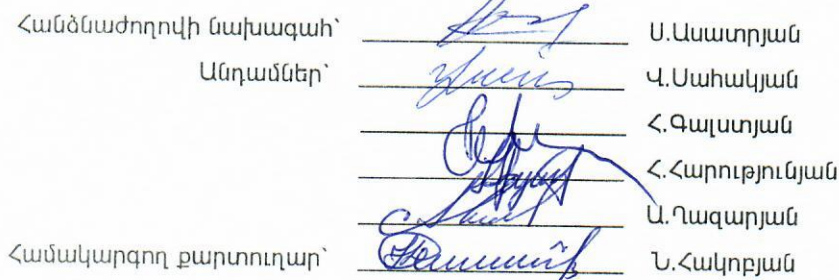 Հանձնաժողովի նախագահ՝ Ս.Ասատրյան
Անդամներ՝ Վ.Սահակյան
Հ.Գալստյան
Հ.Հարությունյան
Ա.Ղազարյան
Համակարգող քարտուղար՝ Ն.Հակոբյան